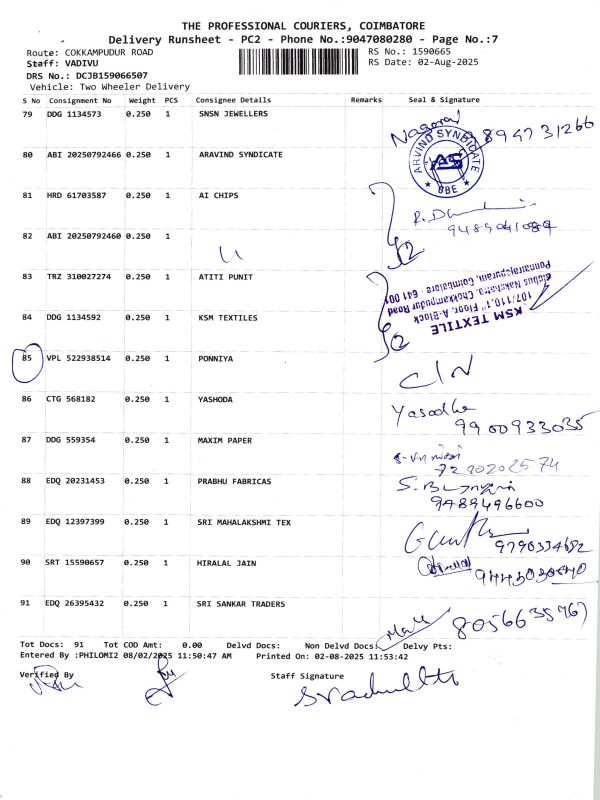 THE PROFESSIONAL COURIERS, COIMBATORE
Delivery Runsheet - PC2 - Phone No.:9047080280 - Page No.:7
Route: COKKAMPUDUR ROAD RS No.: 1590665
Staff: VADIVU RS Date: 02-Aug-2025
DRS No.: DCJB159066507
Vehicle: Two Wheeler Delivery
S No Consignment No Weight PCS Consignee Details Remarks Seal & Signature
79 DDG 1134573 0.250 1 SNSN JEWELLERS
Nagaraj
8947 31266
80 ABI 20250792466 0.250 1 ARAVIND SYNDICATE
ARVIND SYNDICATE
AS
CBE
81 HRD 61703587 0.250 1 AI CHIPS
9489041089
82 ABI 20250792460 0.250 1
83 TRZ 310027274 0.250 1 ATITI PUNIT
84 DDG 1134592 0.250 1 KSM TEXTILES
KSM TEXTILE
107/110,1st Floor, A-Block
Globus Nakshatra, Chokkampudur Road
Ponnairajapuram, Coimbatore - 641 001
85 VPL 522938514 0.250 1 PONNIYA
C/N
86 CTG 568182 0.250 1 YASHODA
Yasodha
9900933035
87 DDG 559354 0.250 1 MAXIM PAPER
7220202574
88 EDQ 20231453 0.250 1 PRABHU FABRICAS
9489496600
89 EDQ 12397399 0.250 1 SRI MAHALAKSHMI TEX
9790334682
90 SRT 15590657 0.250 1 HIRALAL JAIN
9443030540
91 EDQ 26395432 0.250 1 SRI SANKAR TRADERS
8056635767
Tot Docs: 91 Tot COD Amt: 0.00 Delvd Docs: Non Delvd Docs: Delvy Pts:
Entered By :PHILOMI2 08/02/2025 11:50:47 AM Printed On: 02-08-2025 11:53:42
Verified By Staff Signature